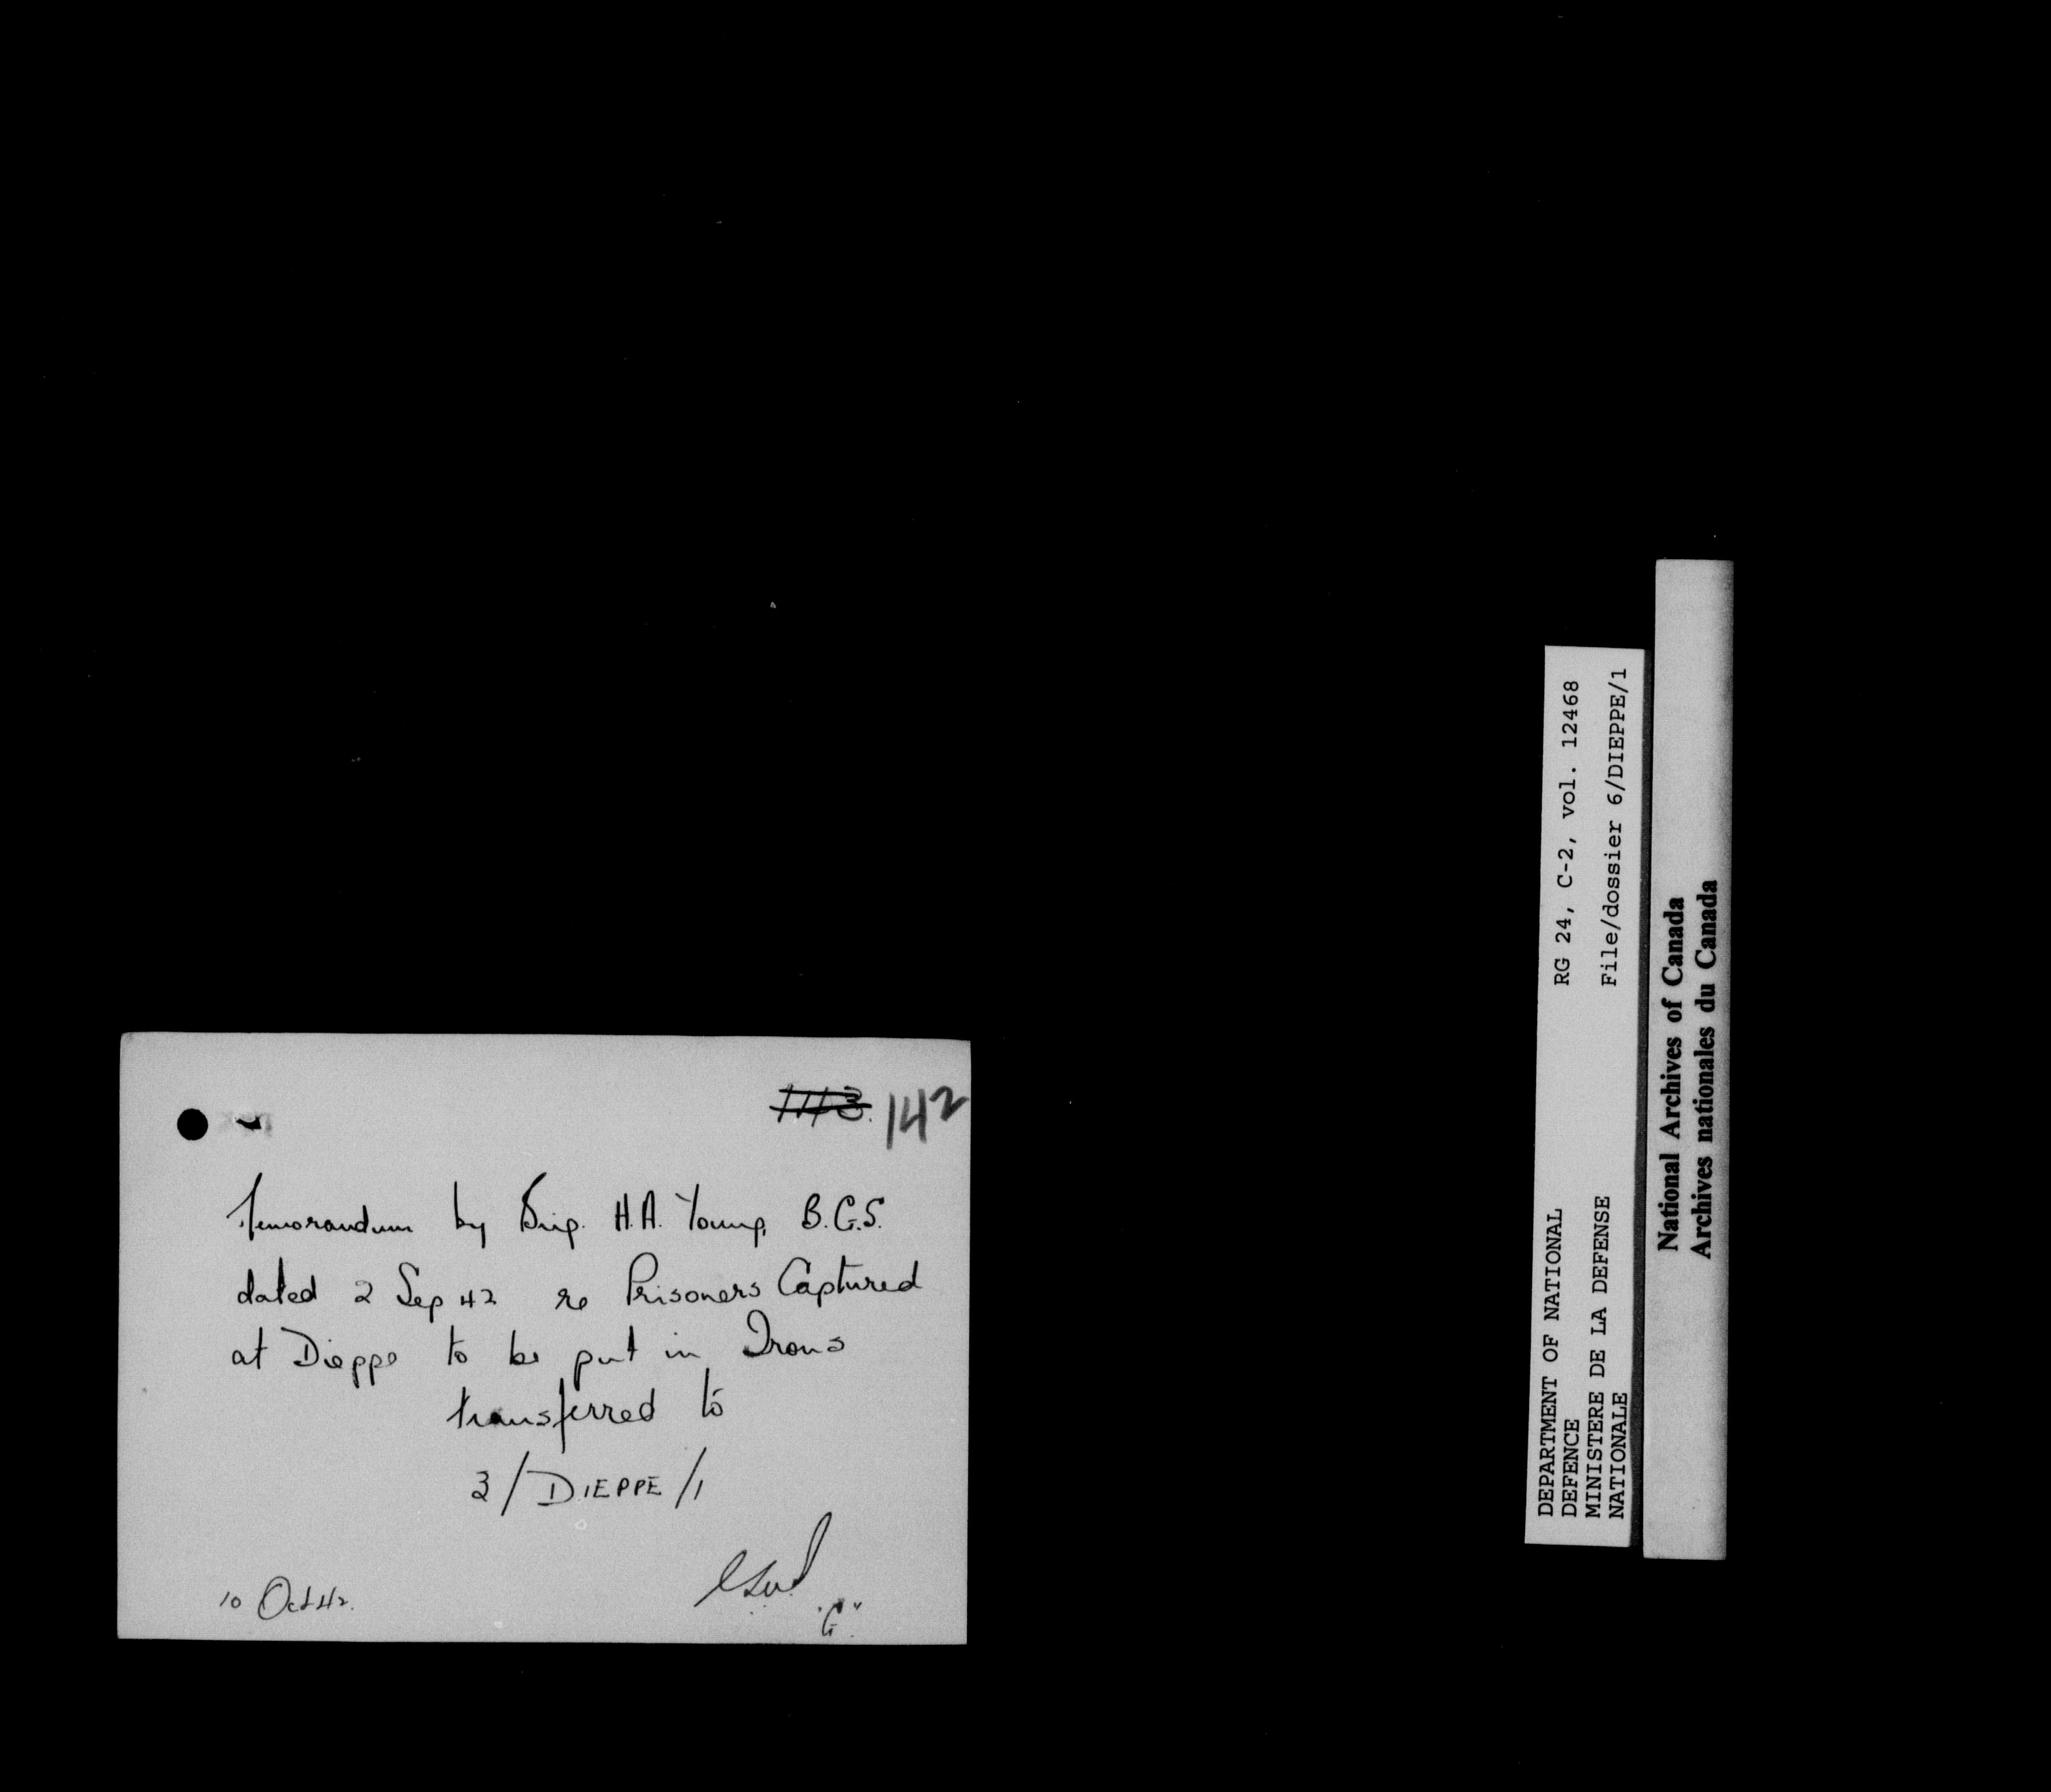 1113. 142
Memorandum by Brig. H.A. Young, B.G.S.
dated 2 Sep 42 re Prisoners Captured
at Dieppe to be put in Irons
transferred to
3/DIEPPE/1
10 Oct 42.
"G".
DEPARTMENT OF NATIONAL
DEFENCE
MINISTERE DE LA DEFENSE
NATIONALE
RG 24, C-2, vol. 12468
File/dossier 6/DIEPPE/1
National Archives of Canada
Archives nationales du Canada